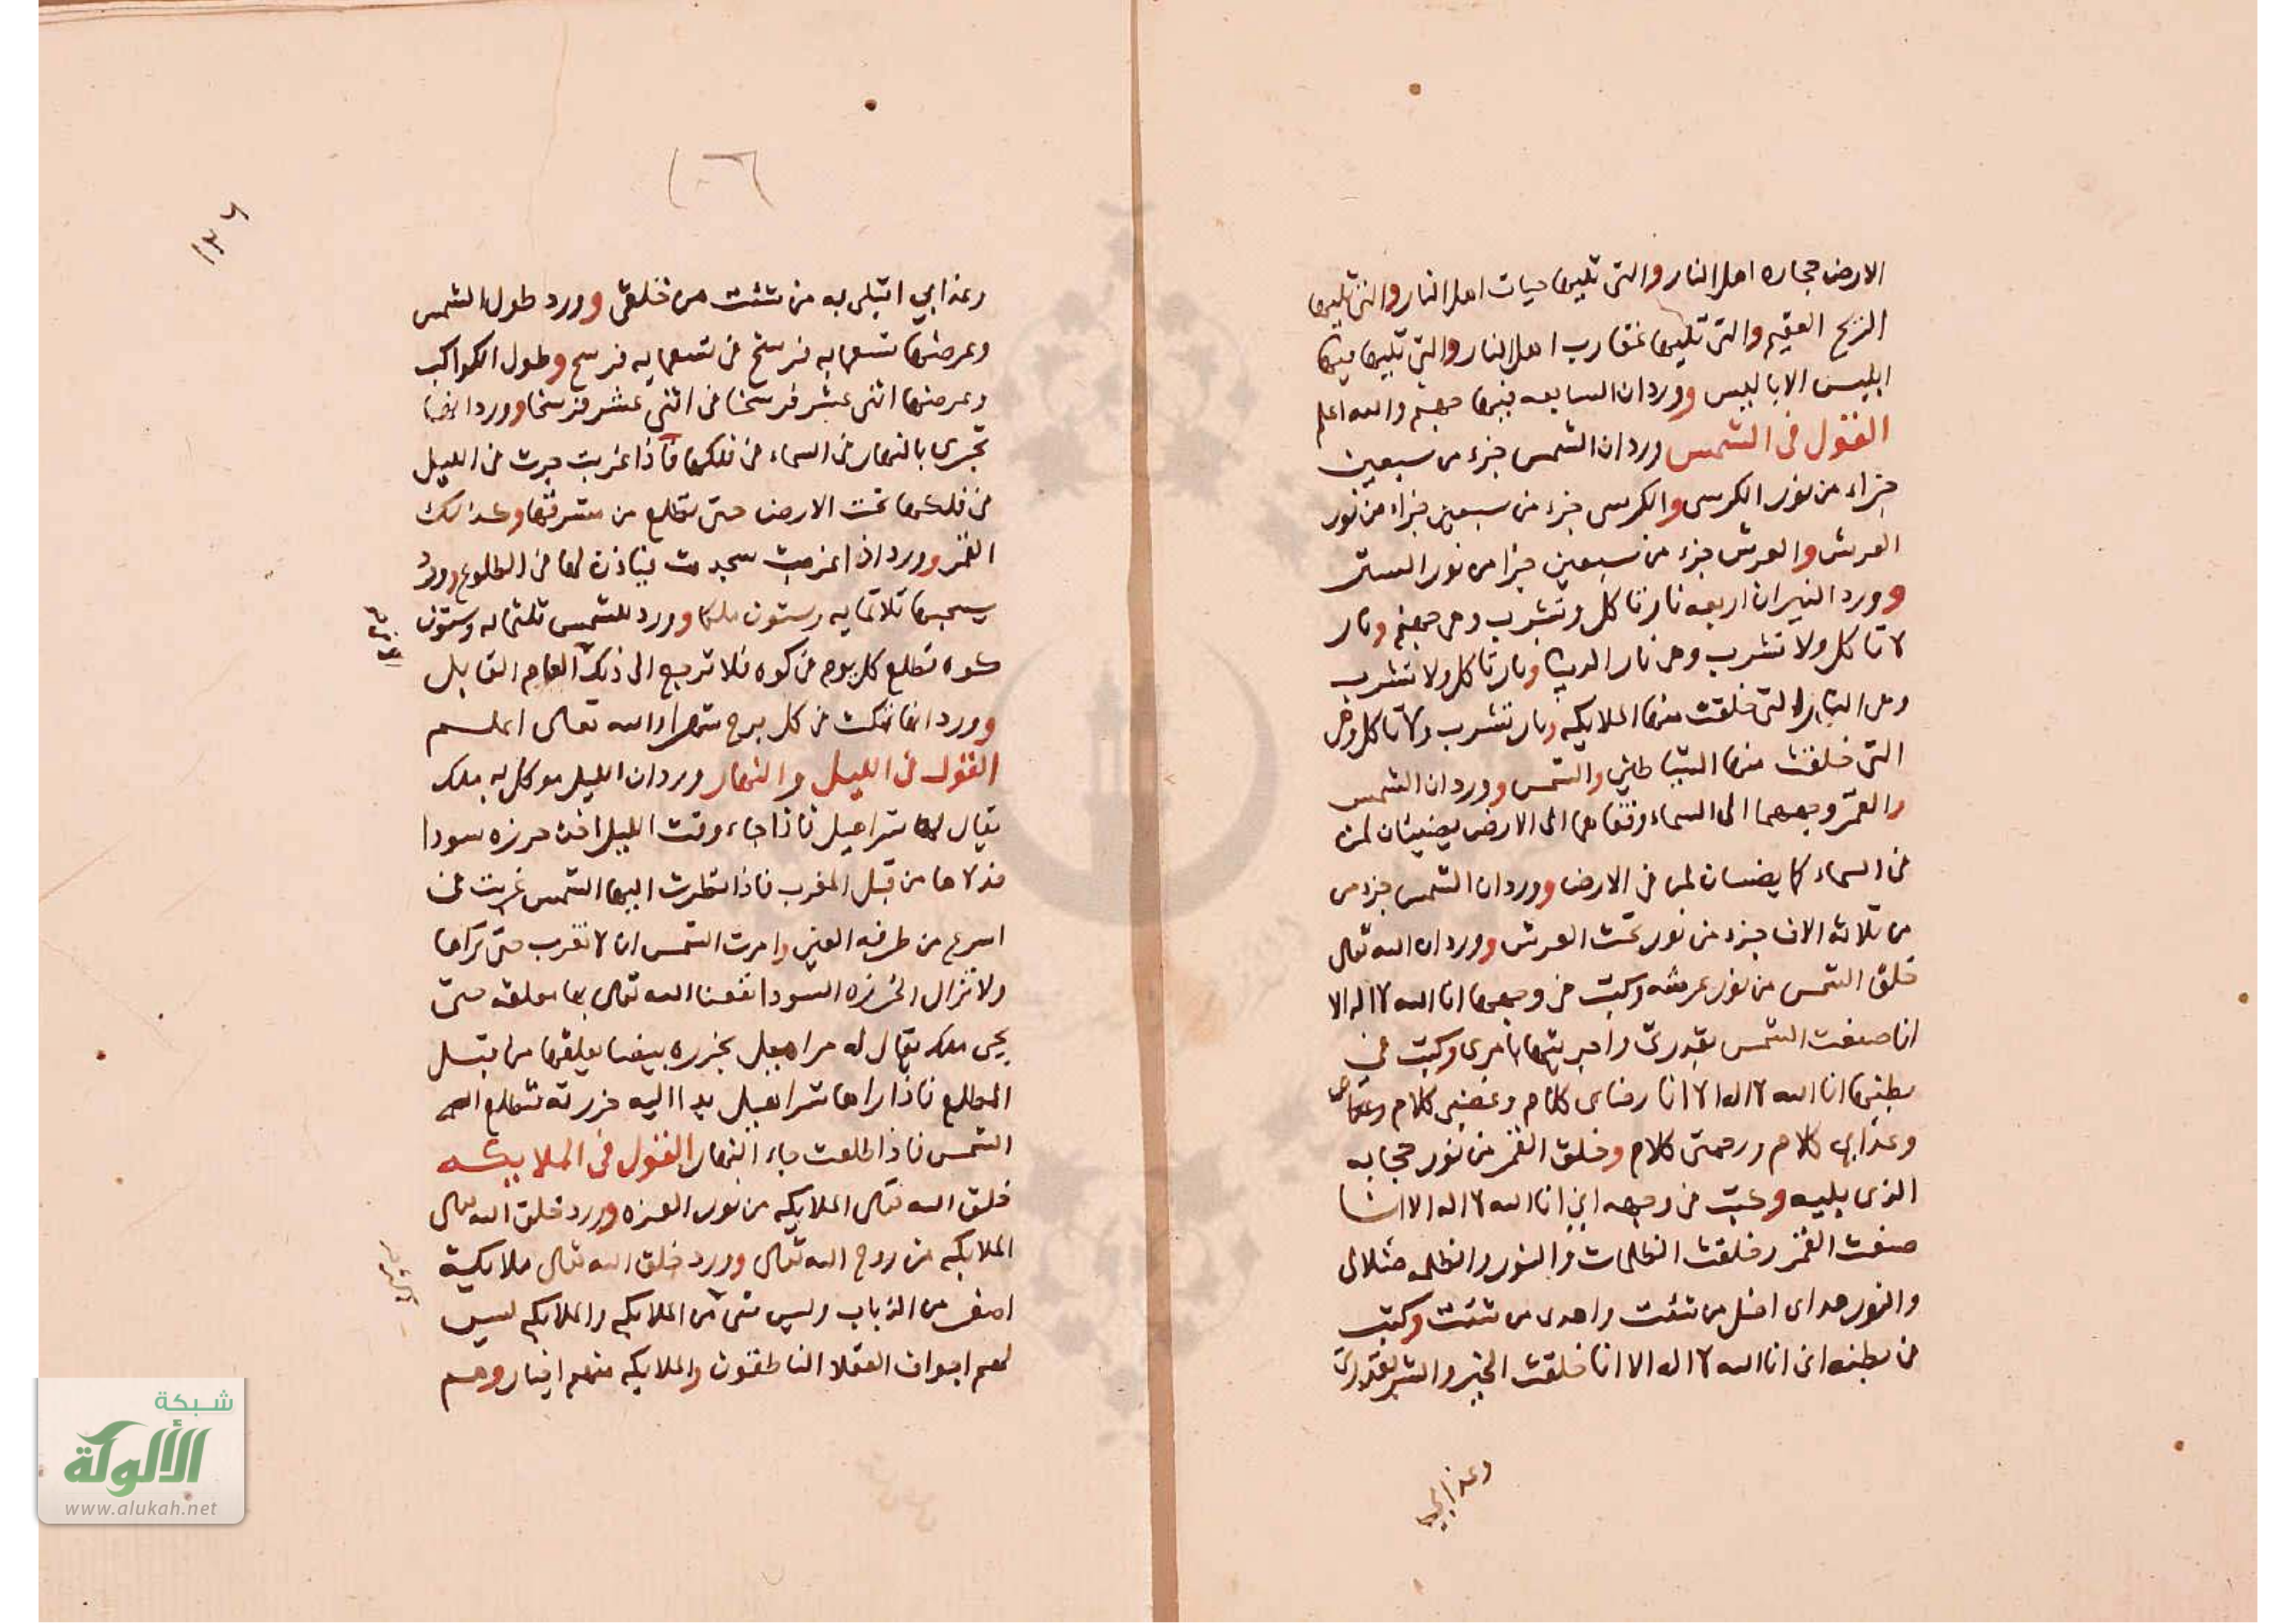 الارض حجاره اهل النار والتى تليها حيات اهل النار والتى تليها
الريح العقيم والتى تليها عقارب اهل النار والتى تليها فيها
ابليس الاباليس وورد ان السابعه فيها جهنم والله اعلم
القول فى الشمس ورد ان الشمس جزء من سبعين
جزاء من نور الكرسى والكرسى جزء من سبعين جزاء من نور
العرش والعرش جزء من سبعين جزا من نور الستر
وورد النيران اربعه نار تاكل وتشرب وهى جهنم ونار
لا تاكل ولا تشرب وهى نار الدنيا ونار تاكل ولا تشرب
وهى النار التى خلقت منها الملايكه ونار تشرب ولا تاكل وهى
التى خلقت منها الشياطين والشمس وورد ان الشمس
والقمر وجههما الى السماء وقفاهما الى الارض يضيئان لمن
فى السماء كما يضيان لمن فى الارض وورد ان الشمس جزء من
من ثلاثه الاف جزء من نور تحت العرش وورد ان الله تعالى
خلق الشمس من نور عرشه وكتب فى وجهها انا الله لا اله الا
انا صنعت الشمس بقدرتى واجريتها بامرى وكتب فى
بطنها انا الله لا اله الا انا رضاى كلام وغضبى كلام
وعذابى كلام ورحمتى كلام وخلق القمر من نور حجابه
الذى يليه وكتب فى وجهه انى انا الله لا اله الا انا
صنعت القمر وخلقت الظلمات والنور والظلمه ضلالى
والنور هداى اضل من شئت واهدى من شئت وكتب
فى بطنه انى انا الله لا اله الا انا خلقت الخير والشر بقدرتى
وعذابي
١٣٦
وعذابي ابتلى به من شئت من خلقى وورد طول الشمس
وعرضها تسعمايه فرسخ فى تسعمايه فرسخ وطول الكواكب
وعرضها اثنى عشر فرسخا فى اثنى عشر فرسخا وورد انها
تجرى بالنهار فى السماء فى فلكها فاذا غربت جرت فى الليل
فى فلكها تحت الارض حتى تطلع من مشرقها وكذالك
القمر وورد اذا غربت سجدت فياذن لها فى الطلوع وورد
يسحبها ثلاثمايه وستون ملكا وورد للشمس ثلثمايه وستون
كوه تطلع كل يوم فى كوه فلا ترجع الى ذيك العام القابل
وورد انها تمكث فى كل برج شهرا والله تعالى اعلم
القول فى الليل والنهار ورد ان الليل موكل به ملك
يقال له شراهيل فاذا جاء وقت الليل اخذ خرزه سودا
فدلاها من قبل المغرب فاذا نظرت اليها الشمس غربت فى
اسرع من طرفه العين وامرت الشمس ان لا تغرب حتى تراها
ولا تزال الخرزه السودا نفعنا الله تعالى بها معلقه حتى
يجى ملك يقال له هراهيل بخرزه بيضا يعلقها من قبل
المطلع فاذا راها شراهيل يد االيه خرزته تتطلع الى
الشمس فاذا طلعت جاء النهار القول فى الملايكه
خلق الله تعالى الملايكه من نور العزه وورد خلق الله تعالى
الملايكه من روح الله تعالى وورد خلق الله تعالى ملايكة
اصغر من الذباب وليس شى من الملايكه والملايكه ليس
لهم اجواف العقلا الناطقون والملايكه منهم اخيار وهم
شبكة
الألوكة
www.alukah.net